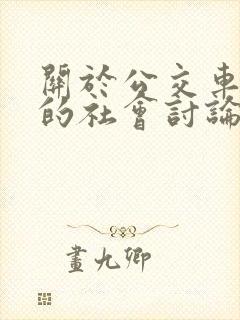 關於公交車
的社會討論
畫九卿